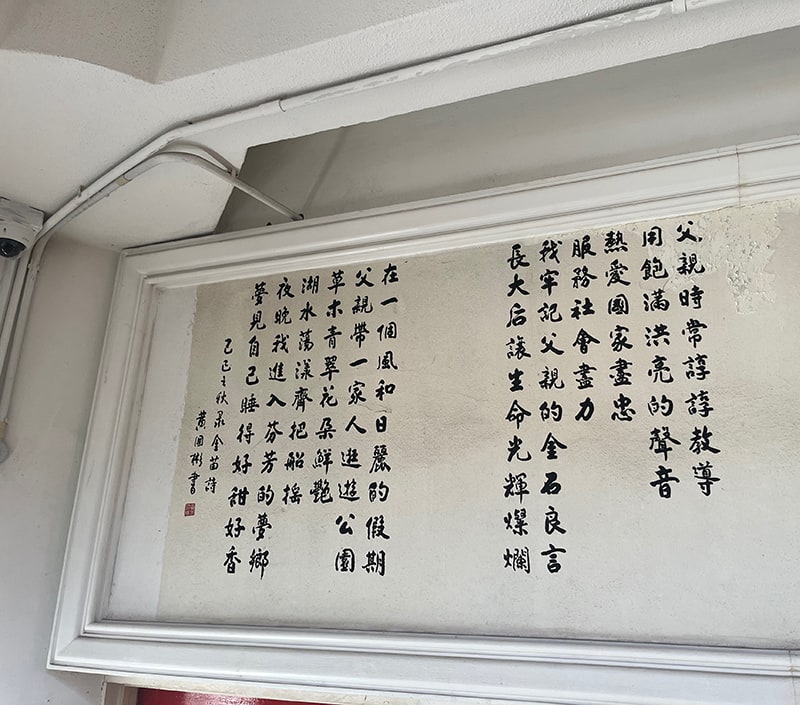 父親時常諄諄教導
用飽滿洪亮的聲音
熱愛國家盡忠
服務社會盡力
我牢記父親的金石良言
長大后讓生命光輝燦爛
在一個風和日麗的假期
父親帶一家人逛遊公園
草木青翠花朵鮮艷
湖水蕩漾齊把船搖
夜晚我進入芬芳的夢鄉
夢見自己睡得好甜好香
乙巳之秋录金苗詩
黃国彬書